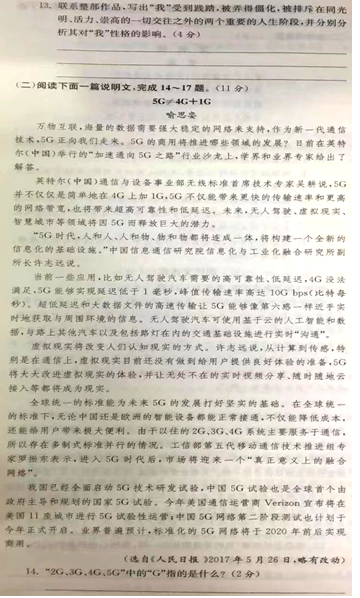 13. 联系整部作品,写出“我”受到践踏,被弄得僵化,被排斥在同光
明、活力、崇高的一切交往之外的两个重要的人生阶段,并分别分
析其对“我”性格的影响。(4分)
(二)阅读下面一篇说明文,完成14~17题。(11分)
5G≠4G+1G
喻思娈
万物互联,海量的数据需要强大稳定的网络来支持,作为新一代通信
技术,5G正向我们走来。5G的商用将推进哪些领域的发展?日前在英特
尔(中国)举行的“加速通向5G之路”行业沙龙上,学界和业界专家给出了
解答。
英特尔(中国)通信与设备事业部无线标准首席技术专家吴耕说,5G
并不仅仅是简单地在4G上加1G,5G不仅能带来更快的传输速率和更高
的网络带宽,也将带来超高可靠性和低延迟。未来,无人驾驶、虚拟现实、
智慧城市等领域将因5G而释放巨大的潜力。
“5G时代,人和人、人和物、物和物都将连成一体,将构建一个全新的
信息化的基础设施。”中国信息通信研究院信息化与工业化融合研究所副
所长许志远说。
当前一些应用,比如无人驾驶汽车需要的高可靠性、低延迟,4G没法
满足,5G能够实现延迟低于1毫秒,峰值传输速率高达10G bps(比特每
秒)。超低延迟和大数据文件的高速传输让5G能够像第六感一样近乎实
时地获取与周围环境的信息。无人驾驶汽车可使用基于云的人工智能和数
据,与路上其他汽车以及包括路灯在内的交通基础设施进行实时“沟通”。
虚拟现实将改变人们认知现实的方式。许志远说,从计算到传感,特
别是在通信上,虚拟现实目前还没有做到给用户提供良好体验的准备,5G
将大大改进虚拟现实的体验,并让无处不在的实时视频分享、随时随地云
接入等都将成为现实。
全球统一的标准能为未来5G的发展打好坚实的基础。在全球统一
的标准下,无论中国还是欧洲的智能设备都能正常接通,不仅能降低成本,
还能给用户带来极大便利。由于以往的2G、3G、4G系统主要服务于通信,
所以存在多制式标准并行的情况。工信部第五代移动通信技术推进组专
家罗振东表示,进入5G时代后,市场将迎来一个“真正意义上的融合
网络”。
我国已经全面启动5G技术研发试验,中国5G试验也是全球首个由
政府主导和规划的国家5G试验。今年美国通信运营商Verizon宣布将在
美国11座城市进行5G试验性运营;中国5G网络第二阶段测试也计划于
今年正式开启。业界普遍预计,标准化的5G网络将于2020年前后实现
商用。
(选自《人民日报》2017年5月26日,略有改动)
14. “2G、3G、4G、5G”中的“G”指的是什么?(2分)